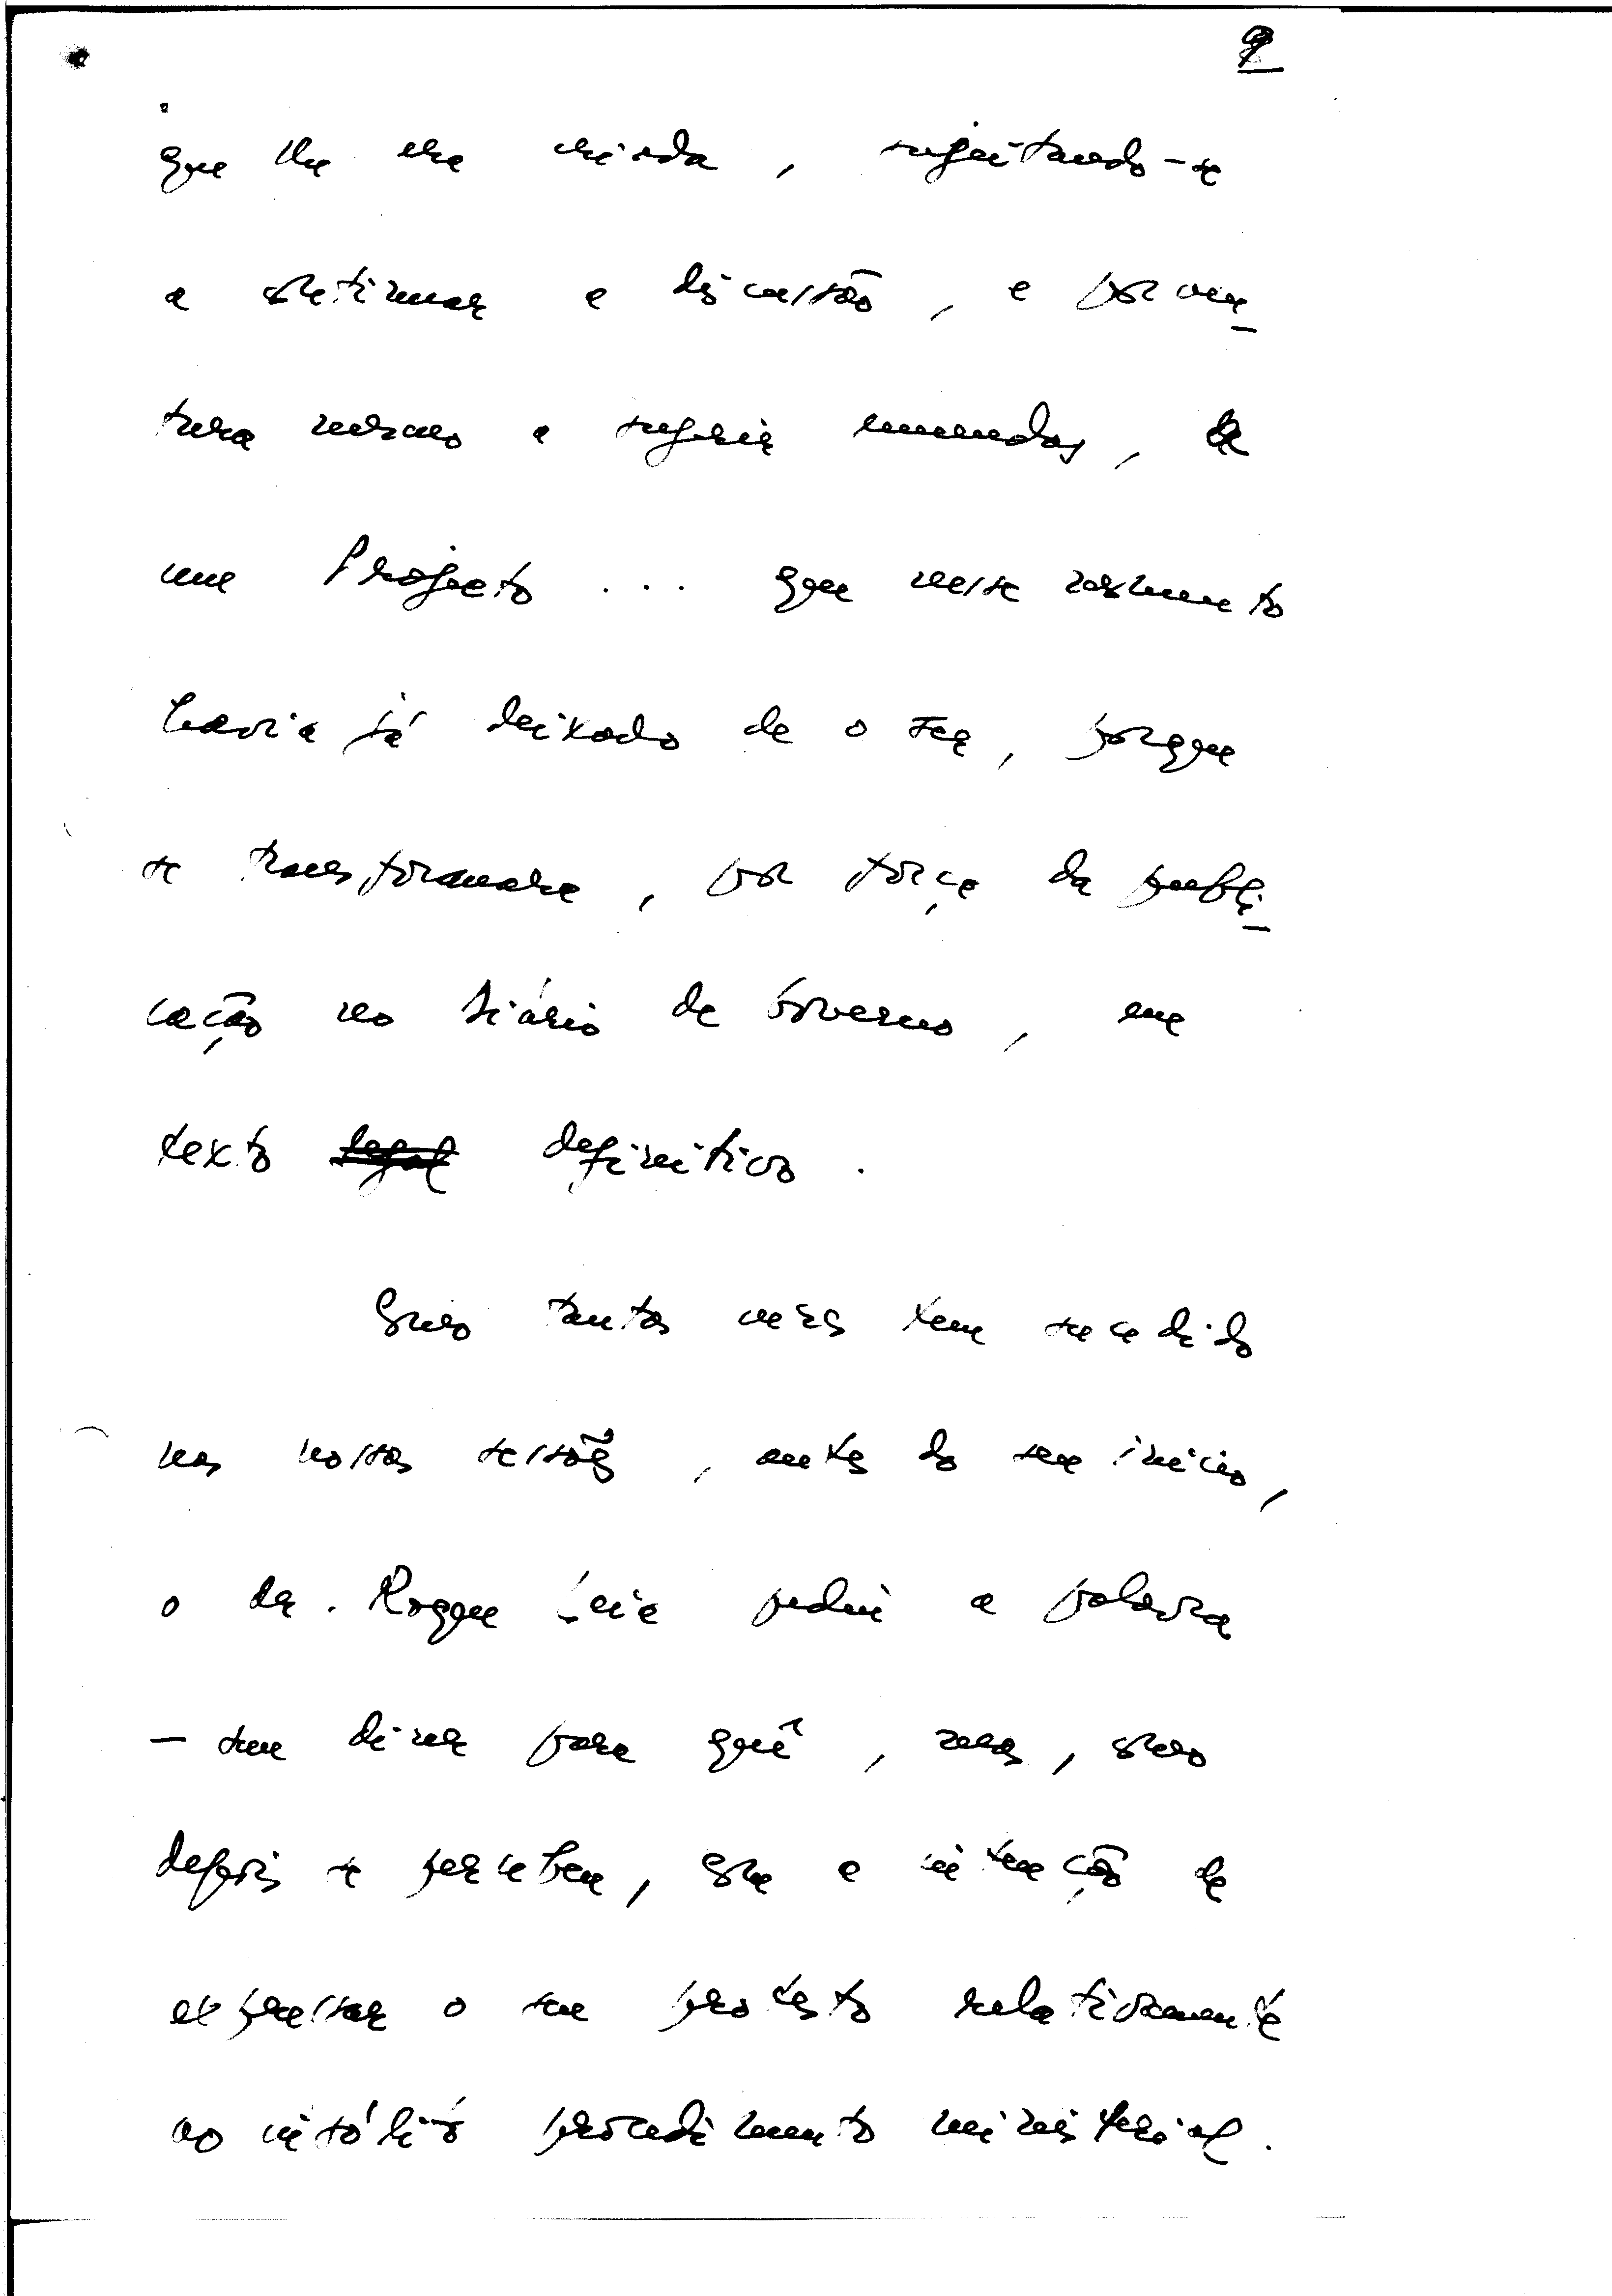 9
que lhe era criada, sujeitando-se
a estimar a discussão, e porven_
tura mesmo a sugerir emendas, de
um Projecto ... que nesse momento
havia já deixado de o ser, porque
se transformara, por força da publi_
cação no Diário do Governo, em
texto legal definitivo.
Como tantas vezes tem sucedido
nas nossas sessões, antes do seu início,
o dr. Roque Laia pediu a palavra
— sem dizer para quê, mas, como
depois se percebeu, com a intenção de
expressar o seu protesto relativamente
ao insólito procedimento ministerial.